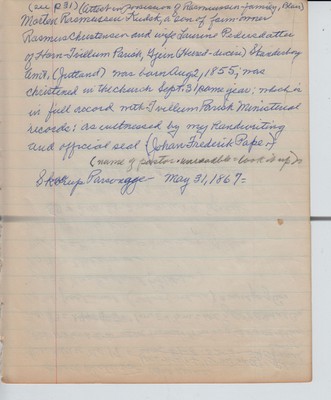 (see p 31) (Attest in possession of Rasmussen family, Blair)
Morten Rasmussen Rudsk, a son of farm owner
Rasmus Christensen and wife Laurine Pedersdatter
of Horn-Tvillum Parish, Gjern (Herred-) Skanderborg
Amt, (Jutland) was born Aug 2, 1855; was
christened in the church Sept. 31 same year; which is
in full record with Tvillum Parish Ministerial
records; as witnessed by my handwriting
and official seal (Johan Frederik Pape.)
(name of pastor - look it up)
Parsonage May 31, 1867 =